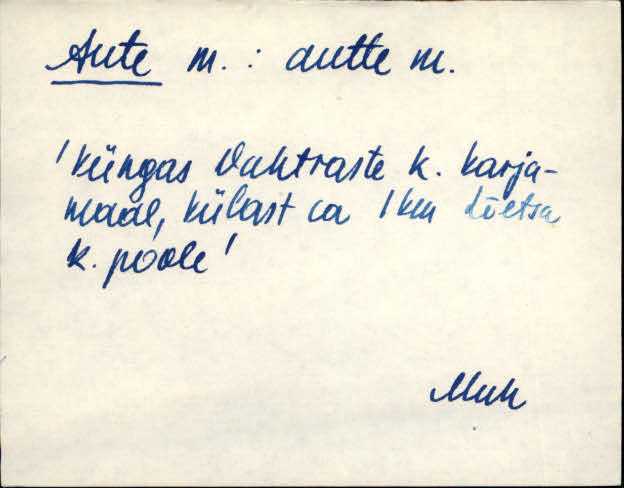 Aute m. : autte m.
'küngas Vahtraste k. karja-
maal, külast ca 1 km Lõetsa
k. poole'
Muh